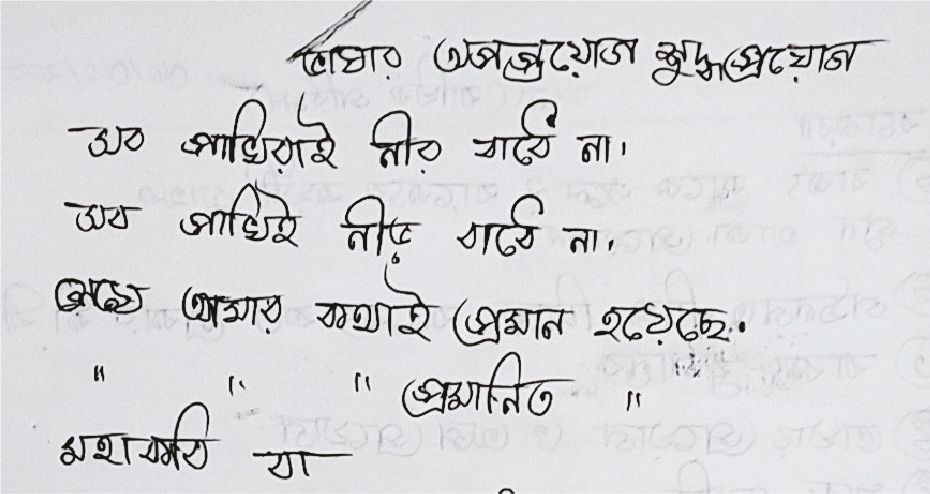 ভাষার অপপ্রয়োগ শুদ্ধপ্রয়োগ
সব পাখিরাই নীর বাধে না।
সব পাখিই নীড় বাধে না।
শেষে আমার কথাই প্রমান হয়েছে.
" " " প্রমানিত "
মহাকবি বা